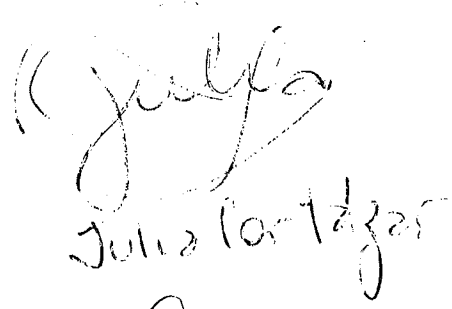 Julia
Julia Cortázar